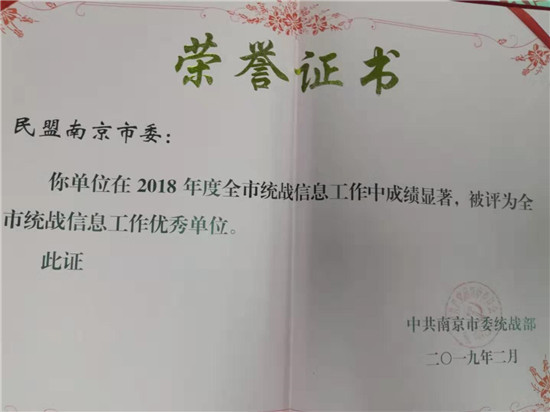 荣誉证书
民盟南京市委：
你单位在 2018 年度全市统战信息工作中成绩显著，被评为全
市统战信息工作优秀单位。
此证
中共南京市委统战部
二〇一九年二月